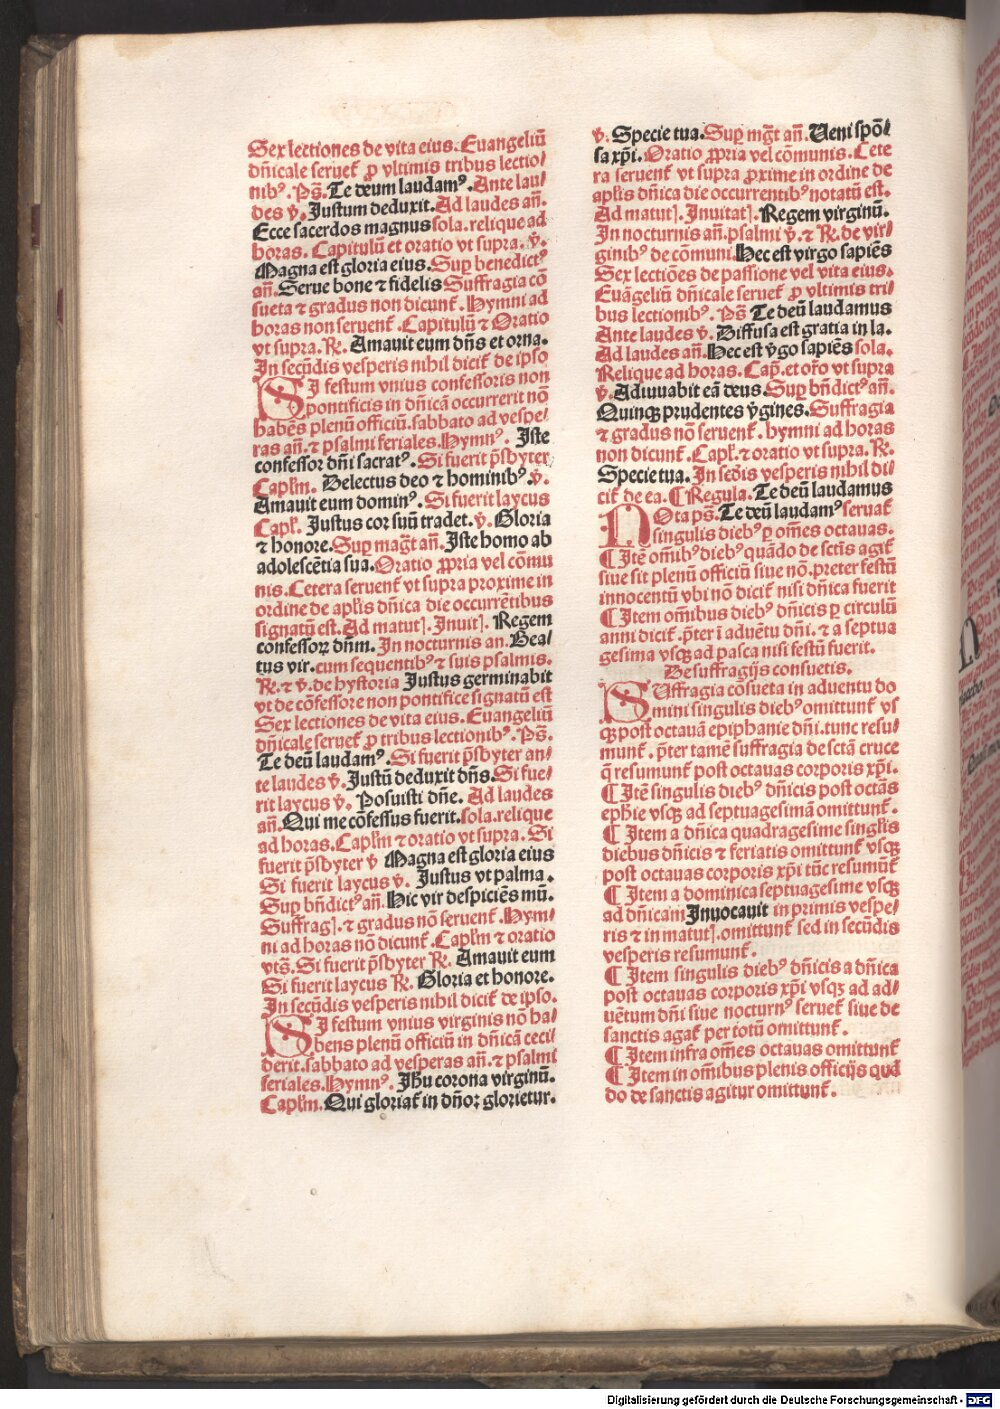 Sex lectiones de vita eius. Euangeliū
dn̄icale seruet̄ ꝓ vltimis tribus lectio/
nibꝰ. Ps̄. Te deum laudamꝰ. Ante lau/
des v̄. Justum deduxit. Ad laudes an̄.
Ecce sacerdos magnus sola. relique ad
horas. Capitulū et oratio vt supra. v̄.
Magna est gloria eius. Suꝑ benedictꝰ
an̄. Serue bone ⁊ fidelis Suffragia cō
sueta ⁊ gradus non dicunt̄. Hymni ad
horas non seruent̄. Capitulū ⁊ Oratio
vt supra. R̄. Amauit eum dn̄s et orna.
In secūdis vesperis nihil dicit̄ de ipso
SI festum vnius confessoris non
pontificis in dn̄icā occurrerit nō
habēs plenū officiū. sabbato ad vespe/
ras an̄. ⁊ psalmi feriales. Hymnꝰ. Iste
confessor dn̄i sacratꝰ. Si fuerit p̄sbyter
Capl̄m. Delectus deo ⁊ hominibꝰ. v̄.
Amauit eum dominꝰ. Si fuerit laycus
Capl̄. Justus cor suū tradet. v̄. Gloria
⁊ honore. Suꝑ maḡt an̄. Iste homo ab
adolescētia sua. Oratio ꝓpria vel cōmu
nis. Cetera seruent̄ vt supra proxime in
ordine de apl̄is dn̄ica die occurrētibus
signatū est. Ad matutꝭ. Inuitꝭ. Regem
confessoꝝ dn̄m. In nocturnis an. Bea/
tus vir. cum sequentibꝰ ⁊ suis psalmis.
R̄. ⁊ v̄. de hystoria Justus germinabit
vt de cōfessore non pontifice signatū est
Sex lectiones de vita eius. Euangeliū
dn̄icale seruet̄ ꝓ tribus lectionibꝰ. Ps̄.
Te deū laudamꝰ. Si fuerit p̄sbyter an/
te laudes v̄. Justū deduxit dn̄s. Si fue/
rit laycus v̄. Posuisti dn̄e. Ad laudes
an̄. Qui me cōfessus fuerit. sola. relique
ad horas. Capl̄m ⁊ oratio vt supra. Si
fuerit p̄sbyter v̄ Magna est gloria eius
Si fuerit laycus v̄. Justus vt palma.
Suꝑ bn̄dictꝰ an̄. Hic vir despiciēs mū.
Suffragꝭ. ⁊ gradus nō seruent̄. Hym/
ni ad horas nō dicunt̄. Capl̄m ⁊ oratio
vts̄. Si fuerit p̄sbyter R̄. Amauit eum
Si fuerit laycus R̄. Gloria et honore.
In secūdis vesperis nihil dicit̄ de ipso.
SI festum vnius virginis nō ha/
bens plenū officiū in dn̄icā ceci/
derit. sabbato ad vesperas an̄. ⁊ psalmi
feriales. Hymnꝰ. Jh̄u corona virginū.
Capl̄m. Qui gloriat̄ in dn̄o: glorietur.
v̄. Specie tua. Suꝑ maḡt an̄. Veni spō/
sa xp̄i. Oratio ꝓpria vel cōmunis. Cete
ra seruent̄ vt supra proxime in ordine de
apl̄is dn̄ica die occurrentibꝰ notatū est.
Ad matutꝭ. Inuitatꝭ. Regem virginū.
In nocturnis an̄. psalmi v̄. ⁊ R̄. de vir/
ginibꝰ de cōmuni. Hec est virgo sapiēs
Sex lectiōes de passione vel vita eius.
Euāgeliū dn̄icale seruet̄ ꝓ vltimis tri/
bus lectionibꝰ. Ps̄ Te deū laudamus
Ante laudes v̄. Diffusa est gratia in la.
Ad laudes an̄. Hec est v̄go sapiēs sola.
Relique ad horas. Cap̄. et or̄o vt supra
v̄. Adiuuabit eā deus. Suꝑ bn̄dictꝰ an̄.
Quinqꝫ prudentes v̄gines. Suffragia
⁊ gradus nō seruent̄. hymni ad horas
non dicunt̄. Capl̄. ⁊ oratio vt supra. R̄.
Specie tua. In secd̄is vesperis nihil di/
cit̄ de ea. ¶ Regula. Te deū laudamus
NOta ps̄. Te deū laudamꝰ seruat̄
singulis diebꝰ ꝑ om̄es octauas.
¶ Itē om̄ibꝰ diebꝰ quādo de sct̄is agit̄
siue sit plenū officiū siue nō. preter festū
innocentū vbi nō dicit̄ nisi dn̄ica fuerit
¶ Item om̄ibus diebꝰ dn̄icis ꝑ circulū
anni dicit̄. p̄ter ī aduētu dn̄i. ⁊ a septua
gesima vsqꝫ ad pasca nisi festū fuerit.
De suffragijs consuetis.
SUffragia cōsueta in aduentu do
mini singulis diebꝰ omittunt̄ vs
qꝫ post octauā epiphanie dn̄i. tunc resu/
munt̄. p̄ter tamē suffragia de sctā cruce
q̄ resumunt̄ post octauas corporis xp̄i.
¶ Itē singulis diebꝰ dn̄icis post octās
eph̄ie vsqꝫ ad septuagesimā omittunt̄.
¶ Item a dn̄ica quadragesime singl̄is
diebus dn̄icis ⁊ feriatis omittunt̄ vsqꝫ
post octauas corporis xp̄i tūc resumūt̄
¶ Item a dominica septuagesime vsqꝫ
ad dn̄icam Inuocauit in primis vespe/
ris ⁊ in matutꝭ. omittunt̄ sed in secūdis
vesperis resumunt̄.
¶ Item singulis diebꝰ dn̄icis a dn̄ica
post octauas corporis xp̄i vsqꝫ ad ad/
uētum dn̄i siue nocturnꝰ seruet̄ siue de
sanctis agat̄ per totū omittunt̄.
¶ Item infra om̄es octauas omittunt̄
¶ Item in om̄ibus plenis officijs quā
do de sanctis agitur omittunt̄.
Digitalisierung gefördert durch die Deutsche Forschungsgemeinschaft - DFG